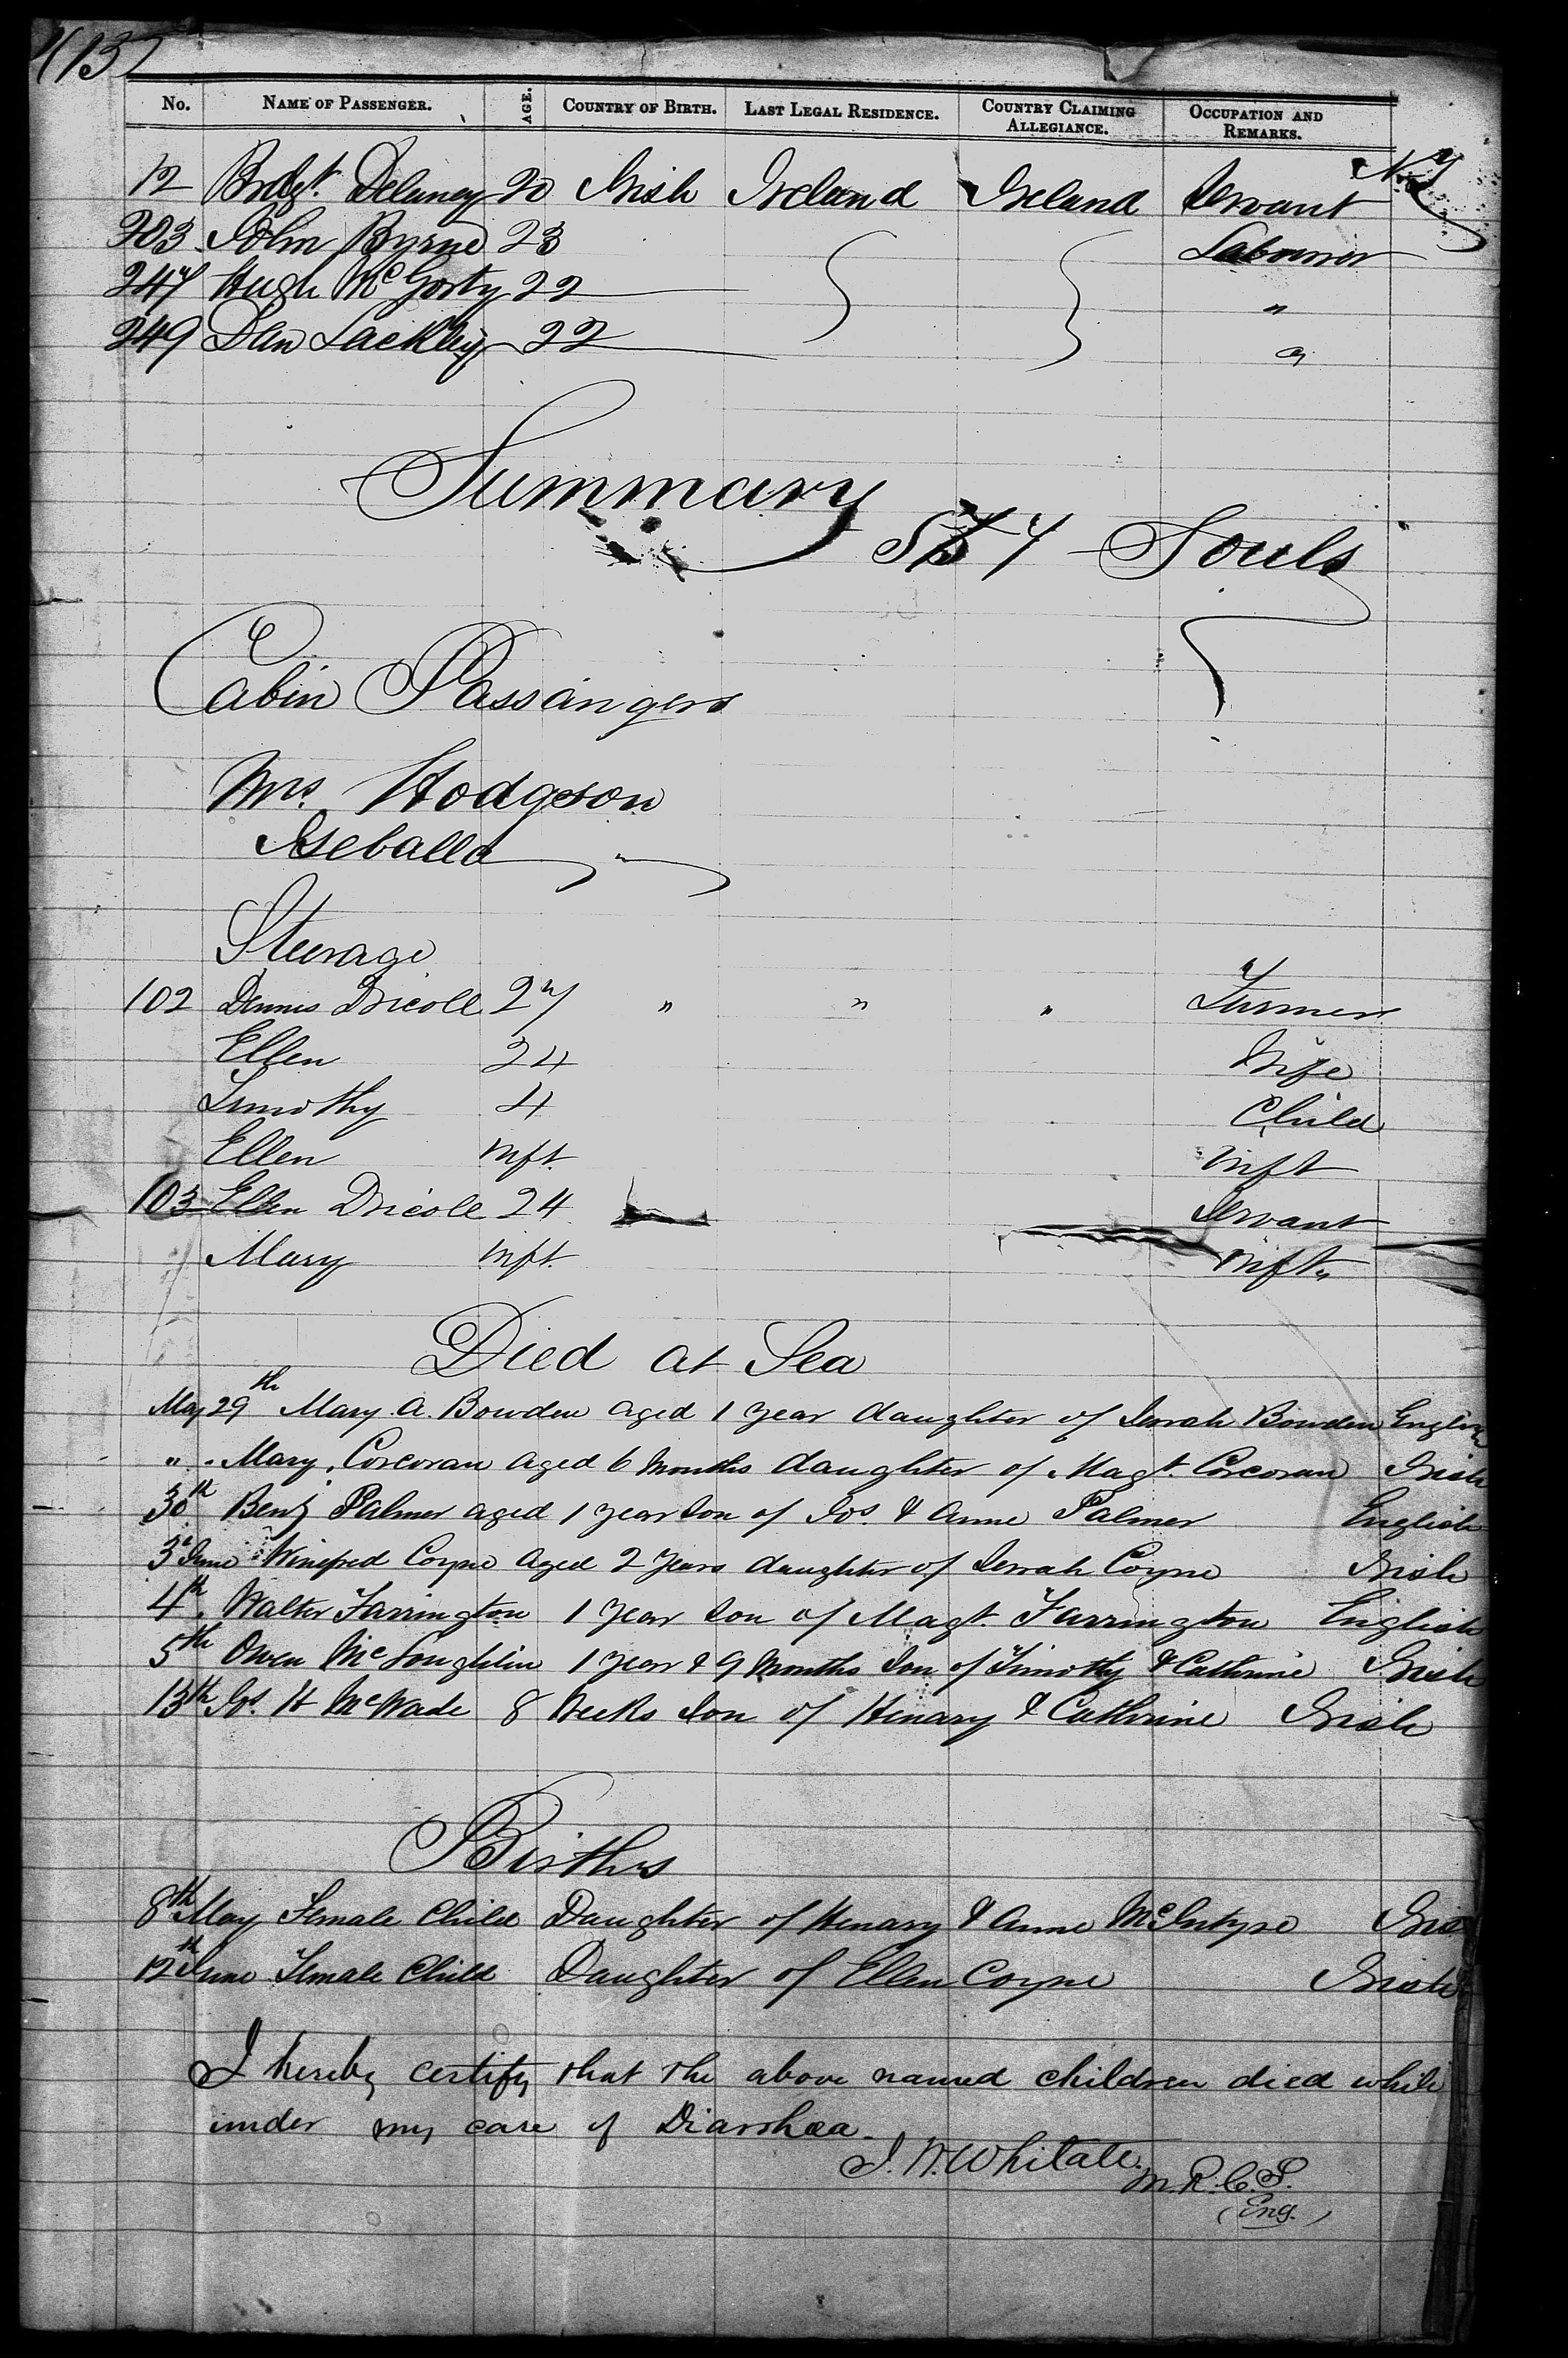 No. NAME OF PASSENGER. AGE. COUNTRY OF BIRTH. LAST LEGAL RESIDENCE. COUNTRY CLAIMING ALLEGIANCE. OCCUPATION AND REMARKS.
12 Bridgt. Delaney 20 Irish Ireland Ireland Servant
203 John Byrne 23 Labourer
247 Hugh McGorty 22 "
249 Dan Lackley 22 "
Summary
Souls
Cabin Passangers
Mrs. Hodgson
Isebella "
Steerage
102 Dennis Driscoll 27 " " " Farmer
Ellen 24 Wife
Timothy 4 Child
Ellen Inft. Inft
103 Ellen Driscoll 24 Servant
Mary Inft. Inft.
Died at Sea
May 29th Mary A. Bowden aged 1 year daughter of Serrah Bowden English
" Mary Corcoran aged 6 Months daughter of Magt. Corcoran Irish
30th Benj Palmer aged 1 year Son of Jos. & Anne Palmer English
3d June Winefred Coyne Aged 2 Years daughter of Serrah Coyne Irish
4th Walter Farrington 1 Year Son of Magt. Farrington English
5th Owen McLoughlin 1 year & 9 Months Son of Timothy & Cathrine Irish
13th Js. H McWade 8 Weeks Son of Henary & Cathrine Irish
Births
8th May Female Child Daughter of Henary & Anne McIntyre Iris
12th June Female Child Daughter of Ellen Coyne Irish
I hereby certify that the above named children died while
under my care of Diarrhœa.
M.R.C.S.
(Eng.)